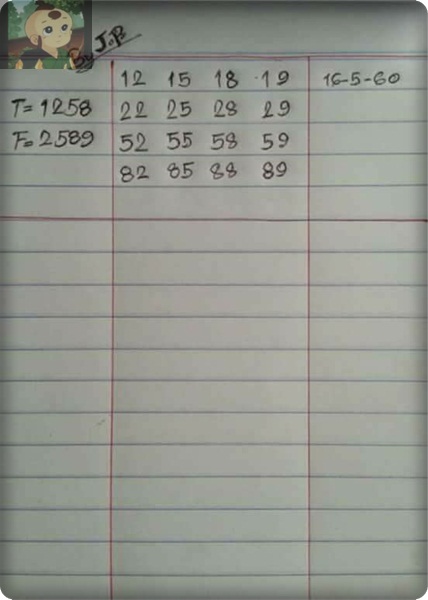 By J.P.
12 15 18 19 16-5-60
T= 1258 22 25 28 29
F= 2589 52 55 58 59
82 85 88 89